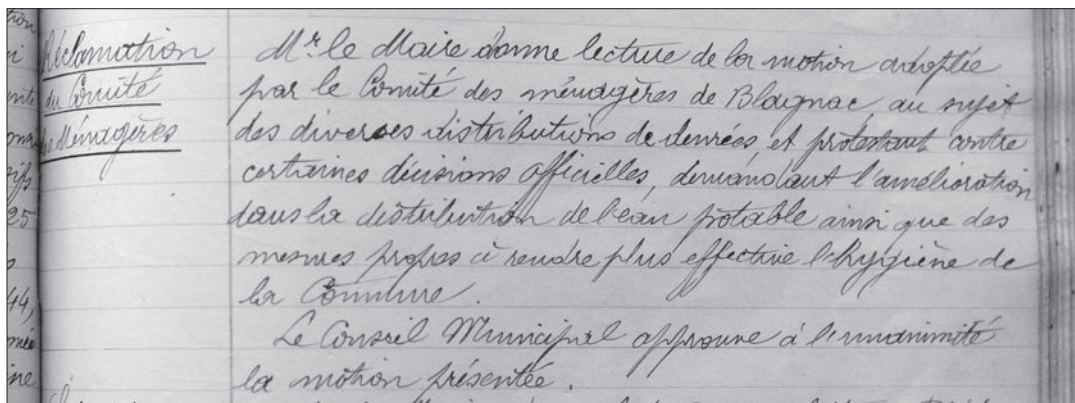 Réclamation
du Comité
de Ménagères
Mr. le Maire donne lecture de la motion adoptée
par le Comité des ménagères de Blagnac, au sujet
des diverses distributions de denrées, et protestant contre
certaines décisions officielles, demandant l'amélioration
dans la distribution de l'eau potable ainsi que des
mesures propres à rendre plus effective l'hygiène de
la Commune.
Le Conseil Municipal approuve à l'unanimité
la motion présentée.
25
44,